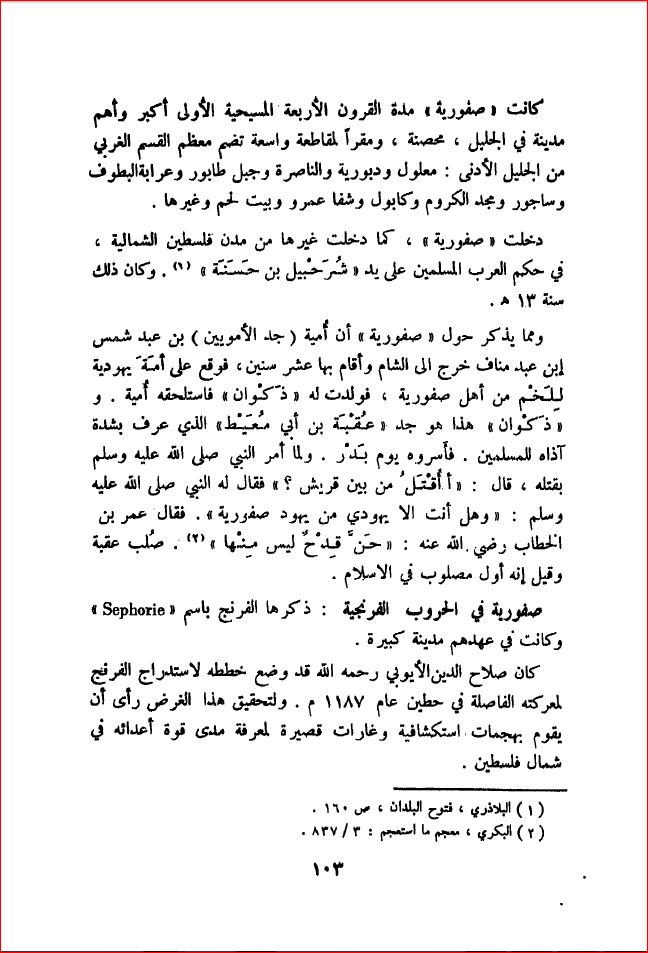 كانت « صفورية » مدة القرون الأربعة المسيحية الأولى أكبر وأهم
مدينة في الجليل ، محصنة ، ومقراً لمقاطعة واسعة تضم معظم القسم الغربي
من الجليل الأدنى : معلول ودبورية والناصرة وجبل طابور وعرابةالبطوف
وساجور ومجد الكروم وكابول وشفا عمرو وبيت لحم وغيرها .
دخلت « صفورية » ، كما دخلت غيرها من مدن فلسطين الشمالية ،
في حكم العرب المسلمين على يد « شُرَحْبيل بن حَسَنَة » (١) . وكان ذلك
سنة ١٣ هـ .
ومما يذكر حول « صفورية » أن أُمية ( جد الأمويين ) بن عبد شمس
إبن عبد مناف خرج الى الشام وأقام بها عشر سنين، فوقع على أمَة يهودية
لِلَخْم من أهل صفورية ، فولدت له « ذَكْوان » فاستلحقه أُمية . و
« ذَكْوان » هذا هو جد « عُقْبَة بن أبي مُعَيْط» الذي عرف بشدة
آذاه للمسلمين . فأسروه يوم بَدْر . ولما أمر النبي صلى الله عليه وسلم
بقتله ، قال : « أأُقْتَلُ من بين قريش ؟ » فقال له النبي صلى الله عليه
وسلم : « وهل أنت الا يهودي من يهود صفورية » . فقال عمر بن
الخطاب رضي الله عنه : « حَنَّ قِدْحٌ ليس مِنْها » (٢) . صُلب عقبة
وقيل إنه أول مصلوب في الاسلام .
صفورية في الحروب الفرنجية : ذكرها الفرنج باسم « Sephorie »
وكانت في عهدهم مدينة كبيرة .
كان صلاح الدين الأيوبي رحمه الله قد وضع خططه لاستدراج الفرنج
لمعركته الفاصلة في حطين عام ١١٨٧ م . ولتحقيق هذا الغرض رأى أن
يقوم بهجمات استكشافية وغارات قصيرة لمعرفة مدى قوة أعدائه في
شمال فلسطين .
( ١ ) البلاذري ، فتوح البلدان ، ص ١٦٠ .
( ٢ ) البكري ، معجم ما استعجم : ٣ / ٨٣٧ .
١٠٣